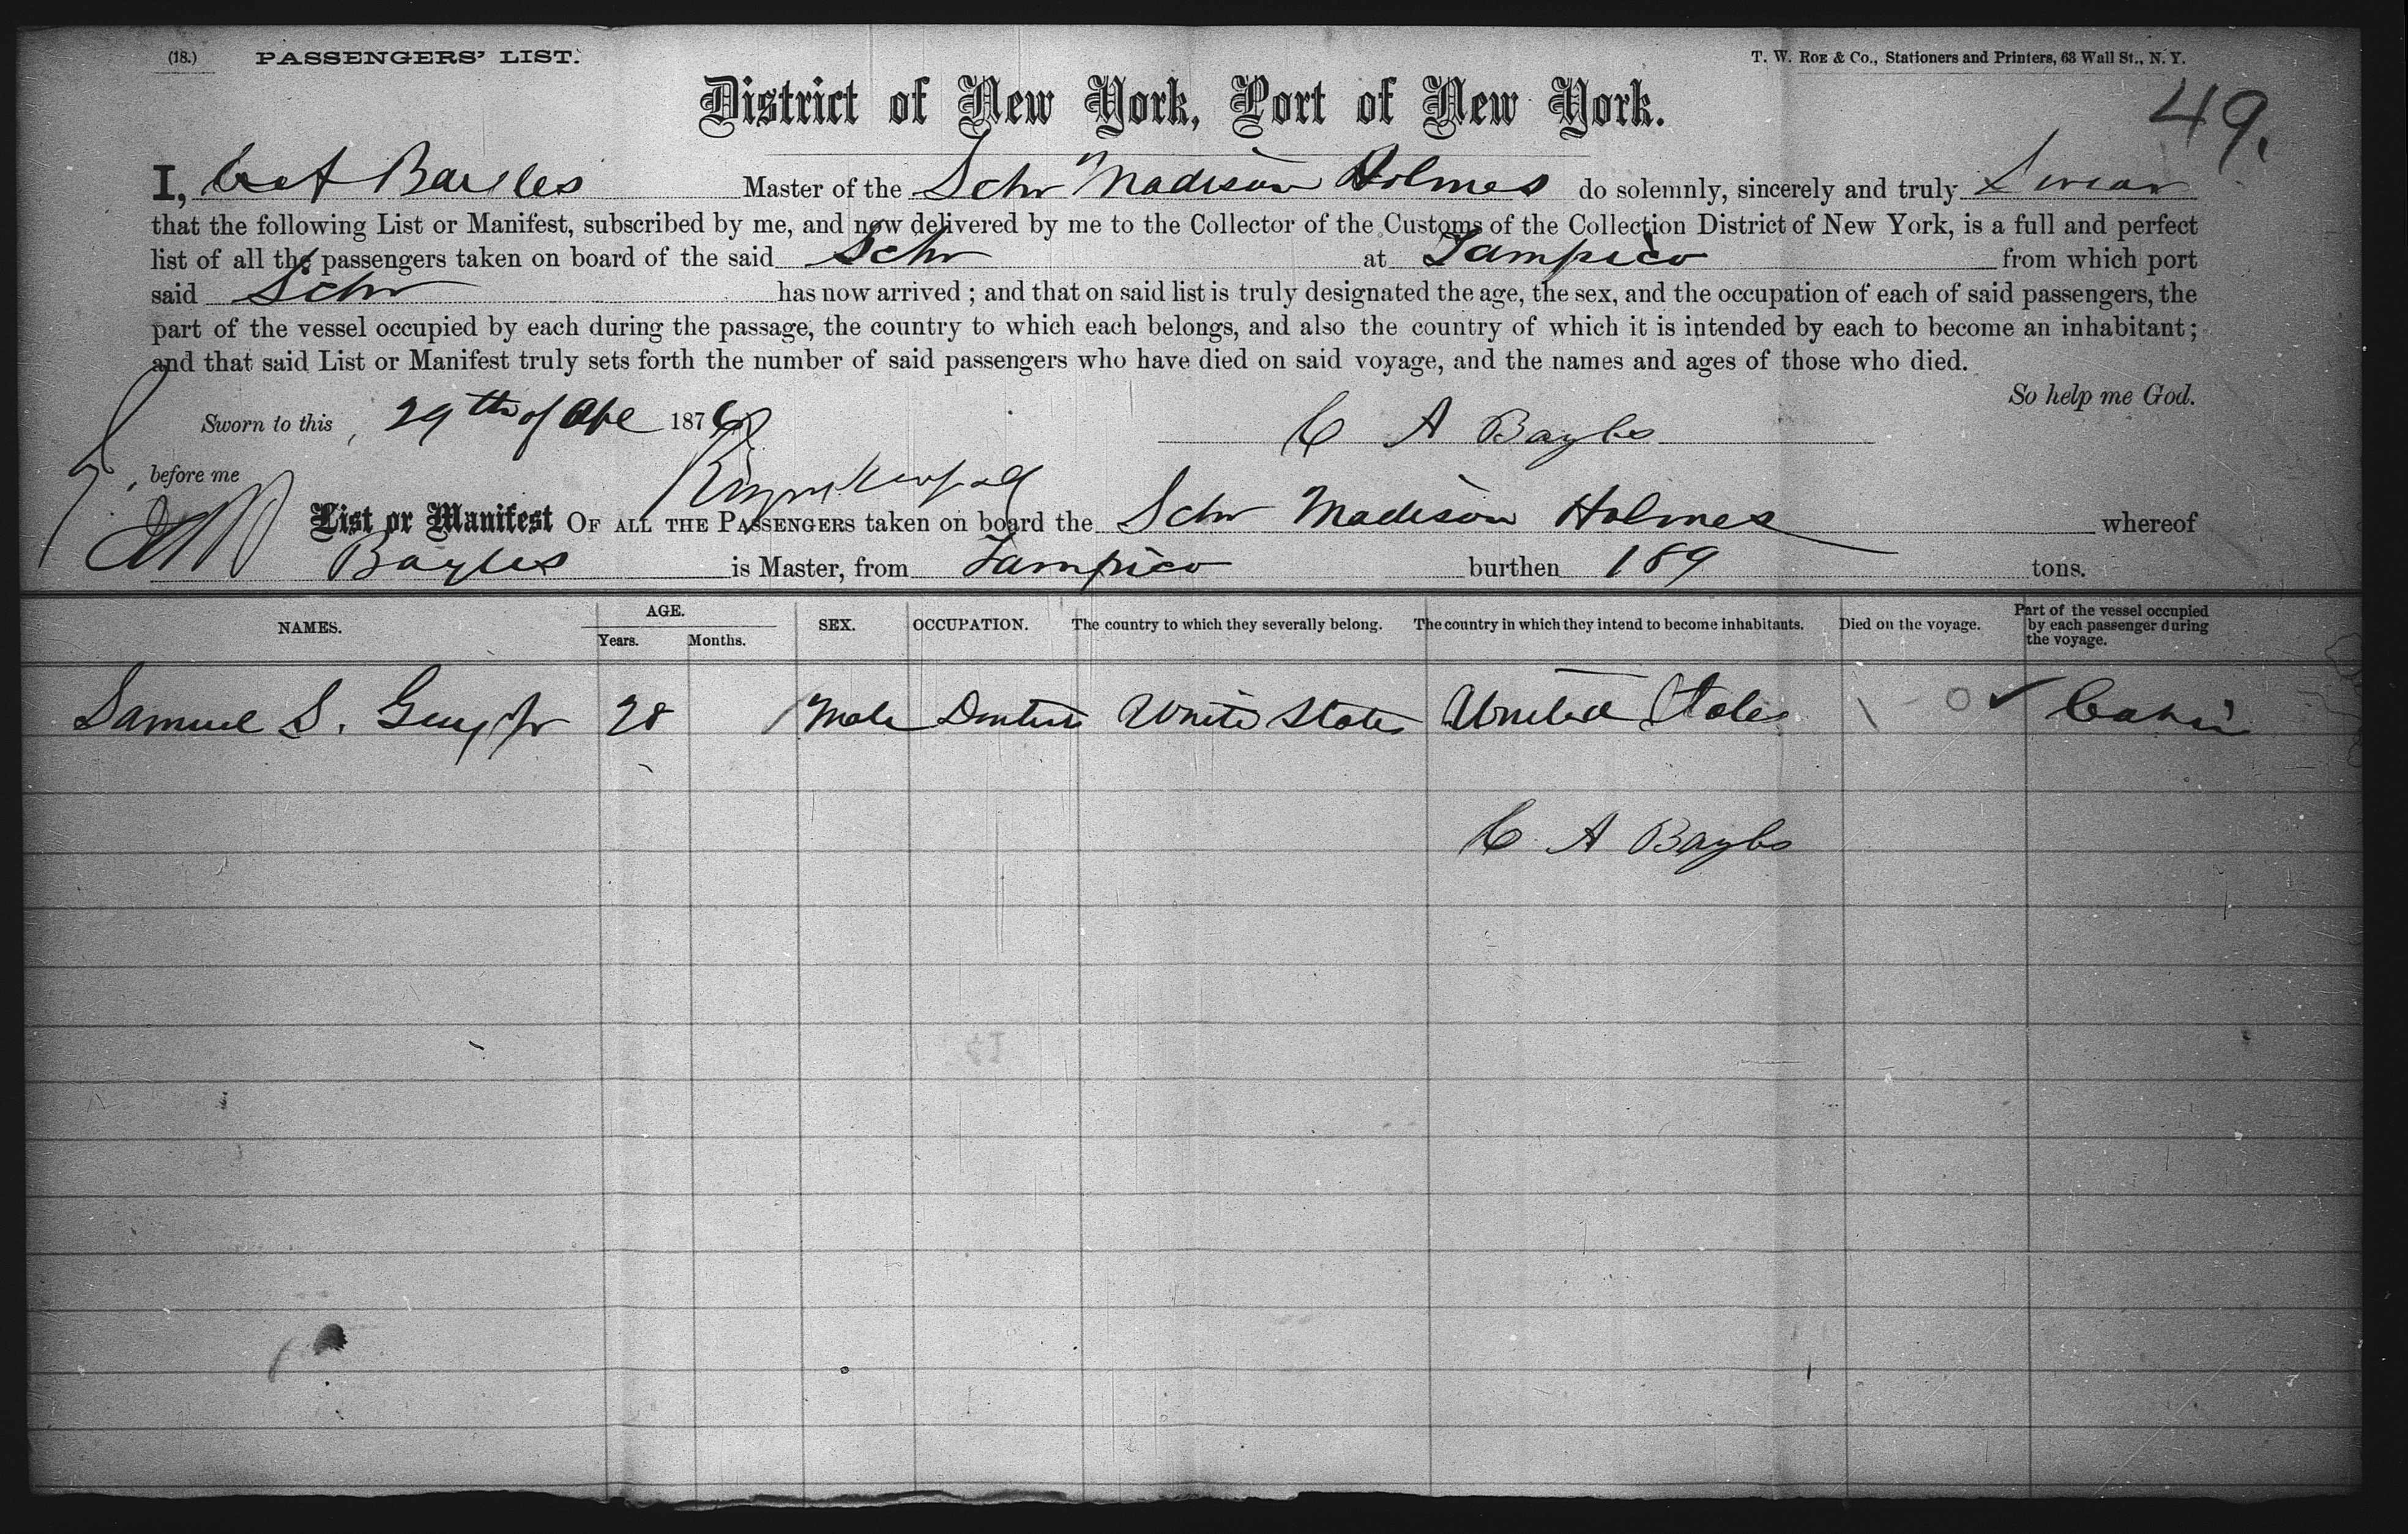 (18.) PASSENGERS' LIST.
T. W. ROE & Co., Stationers and Printers, 63 Wall St., N. Y.
District of New York, Port of New York.
49.
I, C A Bayles Master of the Schr Madison Holmes do solemnly, sincerely and truly Swear
that the following List or Manifest, subscribed by me, and now delivered by me to the Collector of the Customs of the Collection District of New York, is a full and perfect
list of all the passengers taken on board of the said Schr at Tampico from which port
said Schr has now arrived; and that on said list is truly designated the age, the sex, and the occupation of each of said passengers, the
part of the vessel occupied by each during the passage, the country to which each belongs, and also the country of which it is intended by each to become an inhabitant;
and that said List or Manifest truly sets forth the number of said passengers who have died on said voyage, and the names and ages of those who died.
So help me God.
Sworn to this 29th of Apl 1876
C A Bayles
before me
List or Manifest OF ALL THE PASSENGERS taken on board the Schr Madison Holmes whereof
Bayles is Master, from Tampico burthen 189 tons.
NAMES. AGE. Years. Months. SEX. OCCUPATION. The country to which they severally belong. The country in which they intend to become inhabitants. Died on the voyage. Part of the vessel occupied by each passenger during the voyage.
Samuel S. Guy Jr 28 Male Dentist United States United States 0 ✓ Cabin
C A Bayles